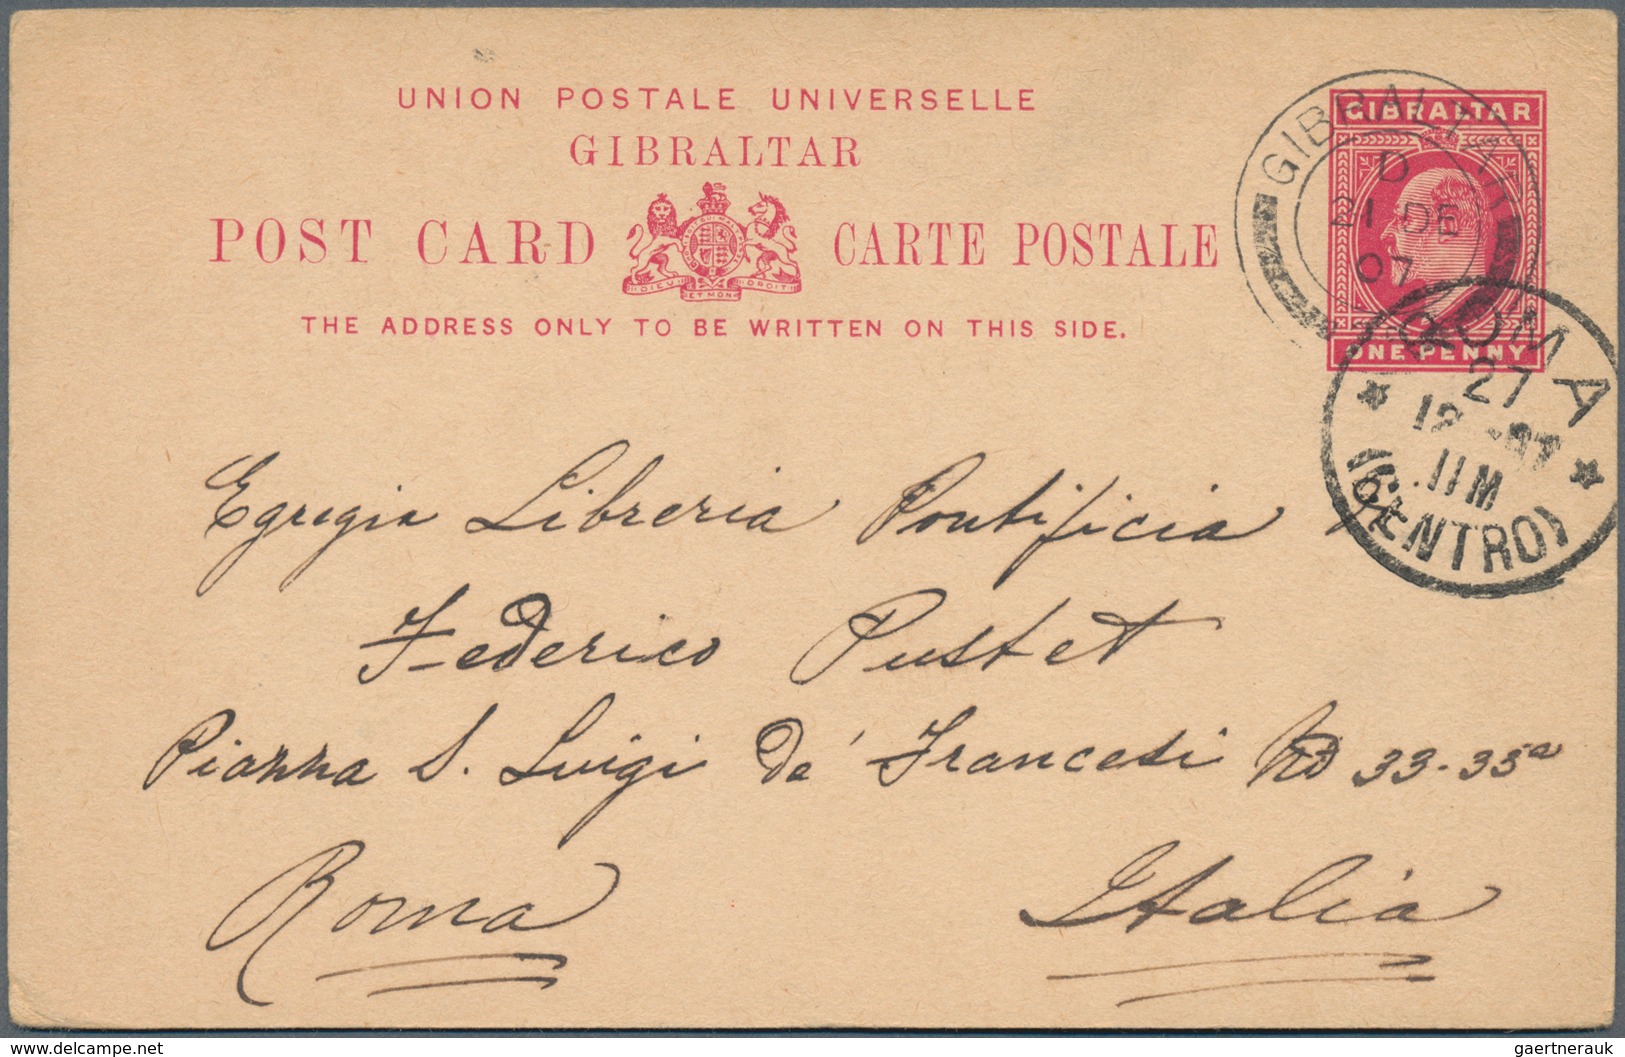 UNION POSTALE UNIVERSELLE
GIBRALTAR
POST CARD CARTE POSTALE
DIEU ET MON DROIT
THE ADDRESS ONLY TO BE WRITTEN ON THIS SIDE.
GIBRALTAR
ONE PENNY
GIBRALTAR
D
21 DE
07
ROMA
27
12 -07
11M
(CENTRO)
Egregia Libreria Pontificia
Federico Pustet
Piazza S. Luigi de' Francesi No 33-35a
Roma Italia
www.delcampe.net
gaertnerauk